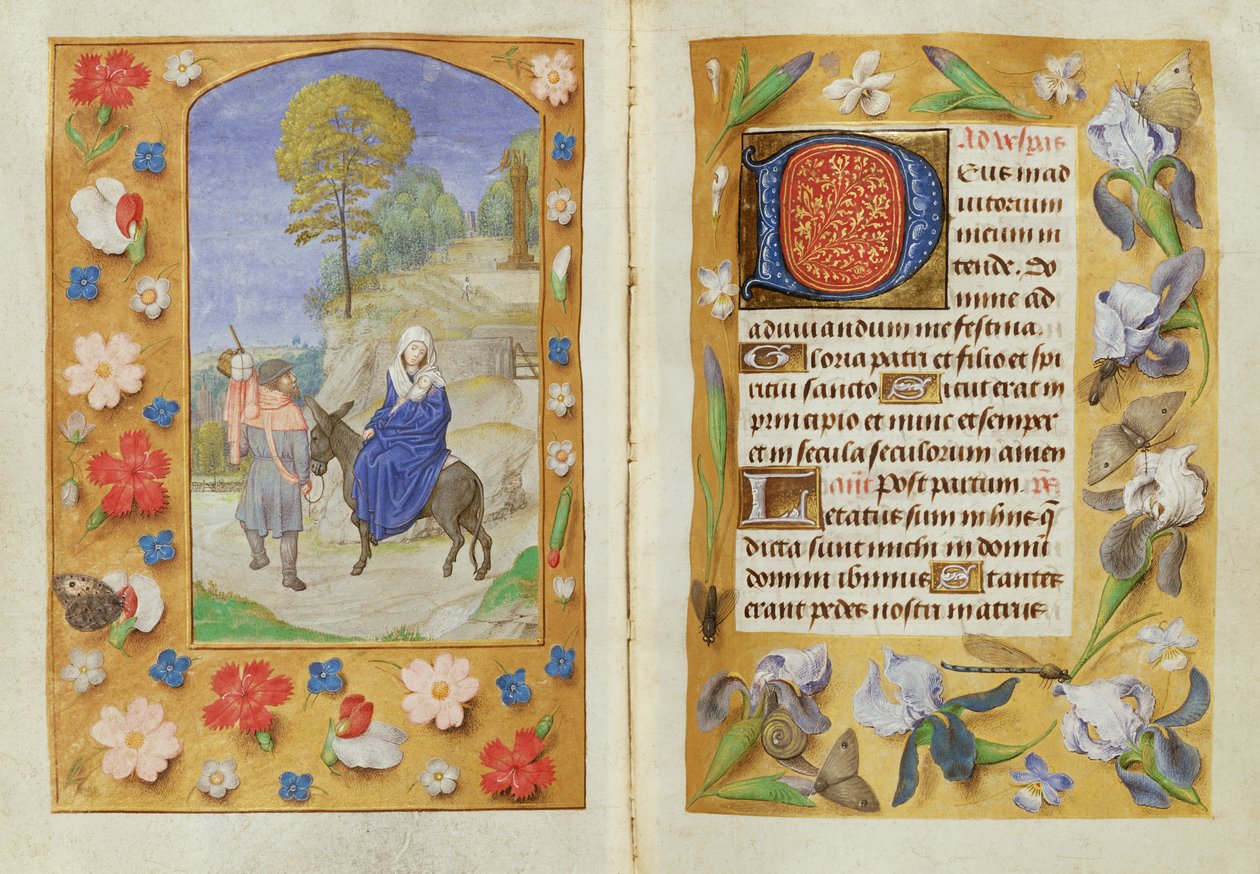 Ad vesp̄as
Deus in ad
iutorium
meum in
tende. Do
mine ad
adiuuandum me festina.
Gloria patri et filio et spi
ritui sancto Sicut erat in
principio et nunc et semper
et in secula seculorum amen
an̄t post partum. p̄s
Letatus sum in hiis q̄
dicta sunt michi in domū
domini ibimus Stantes
erant pedes nostri in atriis